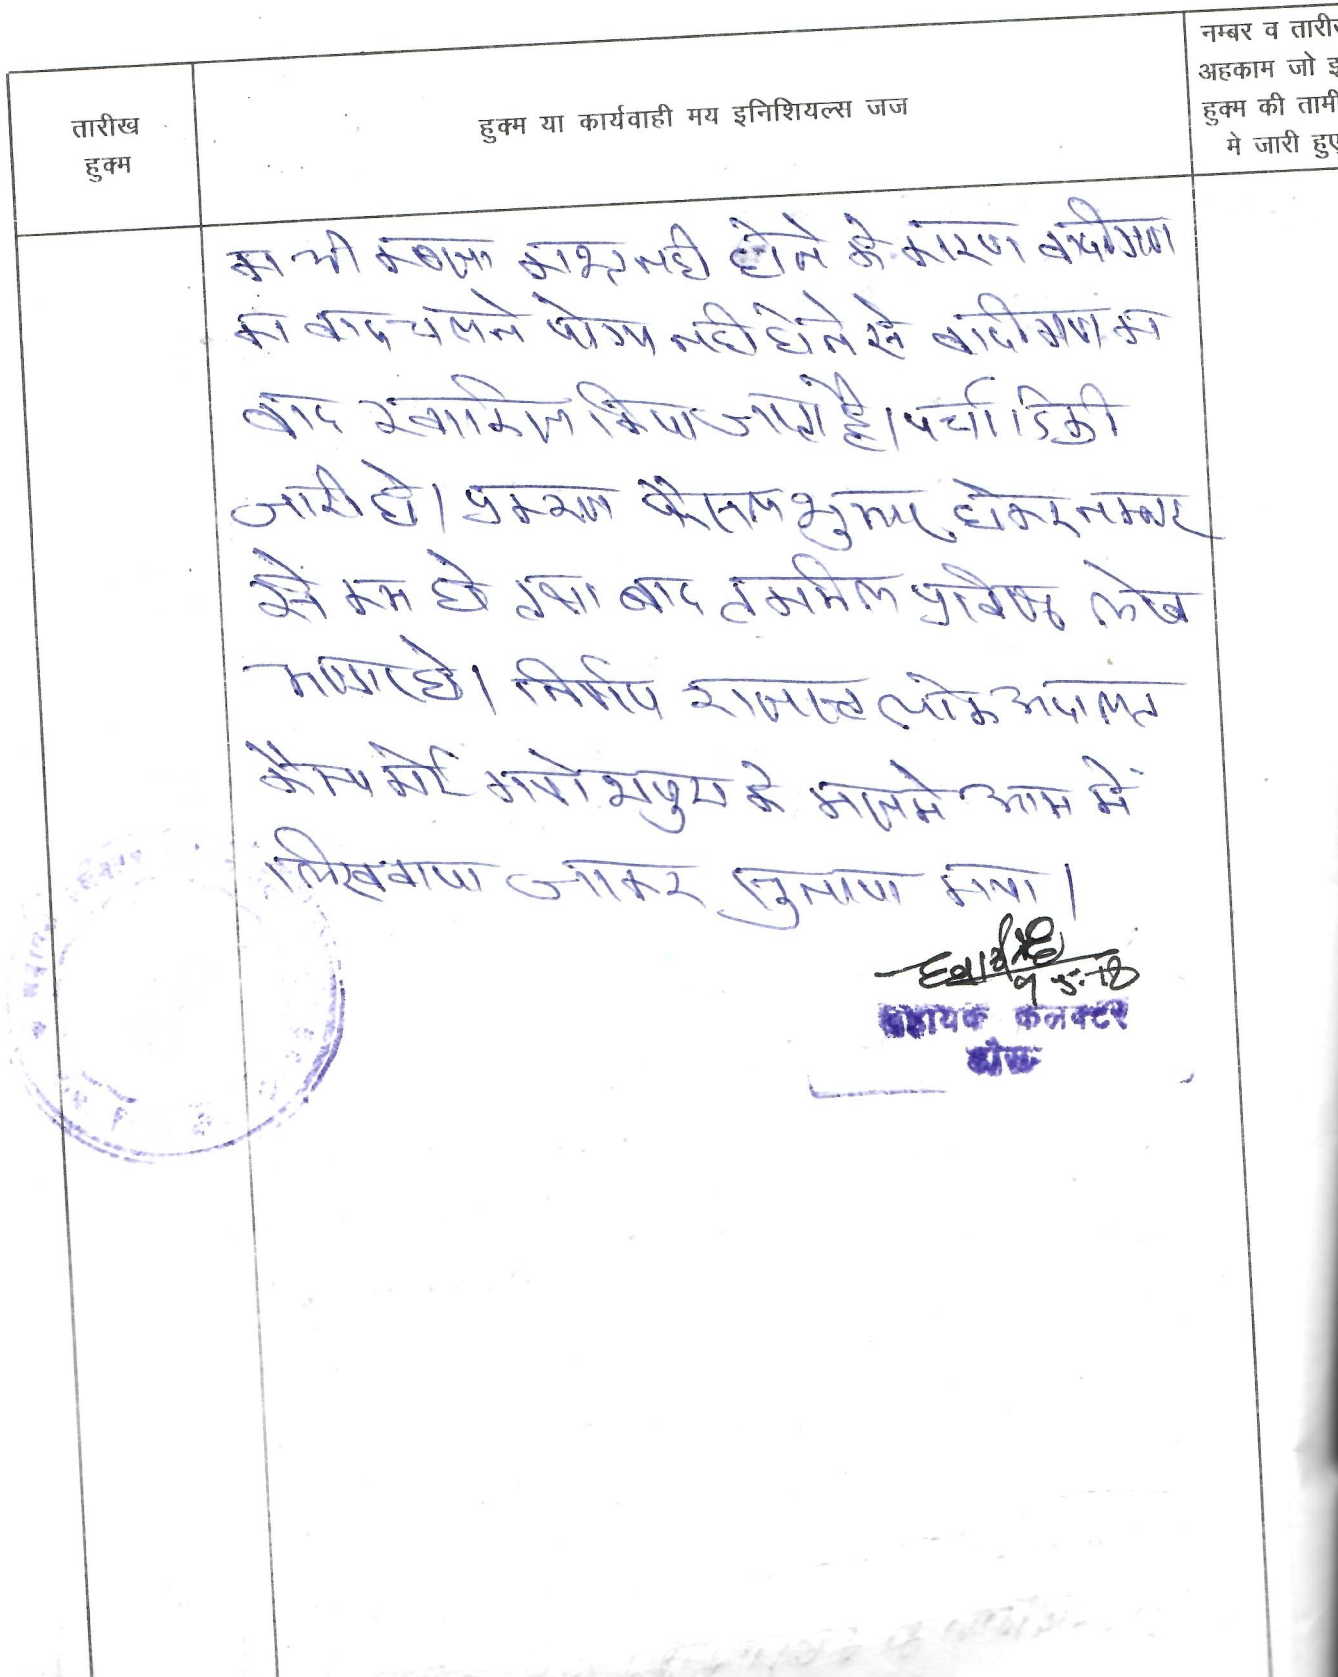 तारीख
हुक्म
हुक्म या कार्यवाही मय इनिशियल्स जज
नम्बर व तारीख
अहकाम जो इ
हुक्म की तामी
मे जारी हुए
का भी कब्जा काश्त नही होने के कारण वादीगण
का वाद चलने योग्य नही होने से वादीगण का
वाद खारिज किया जाता है। पर्चा डिक्री
जारी हो। प्रकरण फैसल शुमार होकर नम्बर
से कम हो तथा बाद तकमील प्रविष्ठ लेख
भागार हो। निर्णय राजस्व लोक अदालत
कैम्प कोर्ट के मजमे आम में
लिखवाया जाकर सुनाया गया।
9-5-18
सहायक कलक्टर